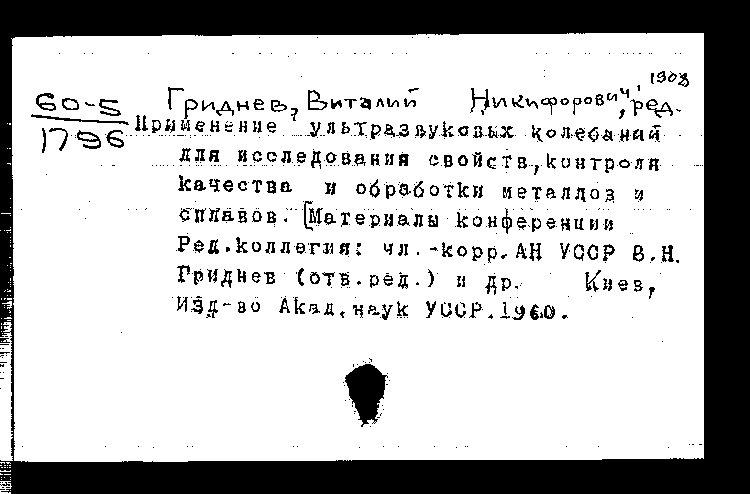 1908
60-5 Гриднев, Виталий Никифорович, ред.
1796 Применение ультразвуковых колебаний
для исследования свойств, контроля
качества и обработки металлов и
сплавов. [Материалы конференции
Ред.коллегия: чл.-корр.АН УССР В.Н.
Гриднев (отв.ред.) и др. Киев,
Изд-во Акад.наук УССР.1960.